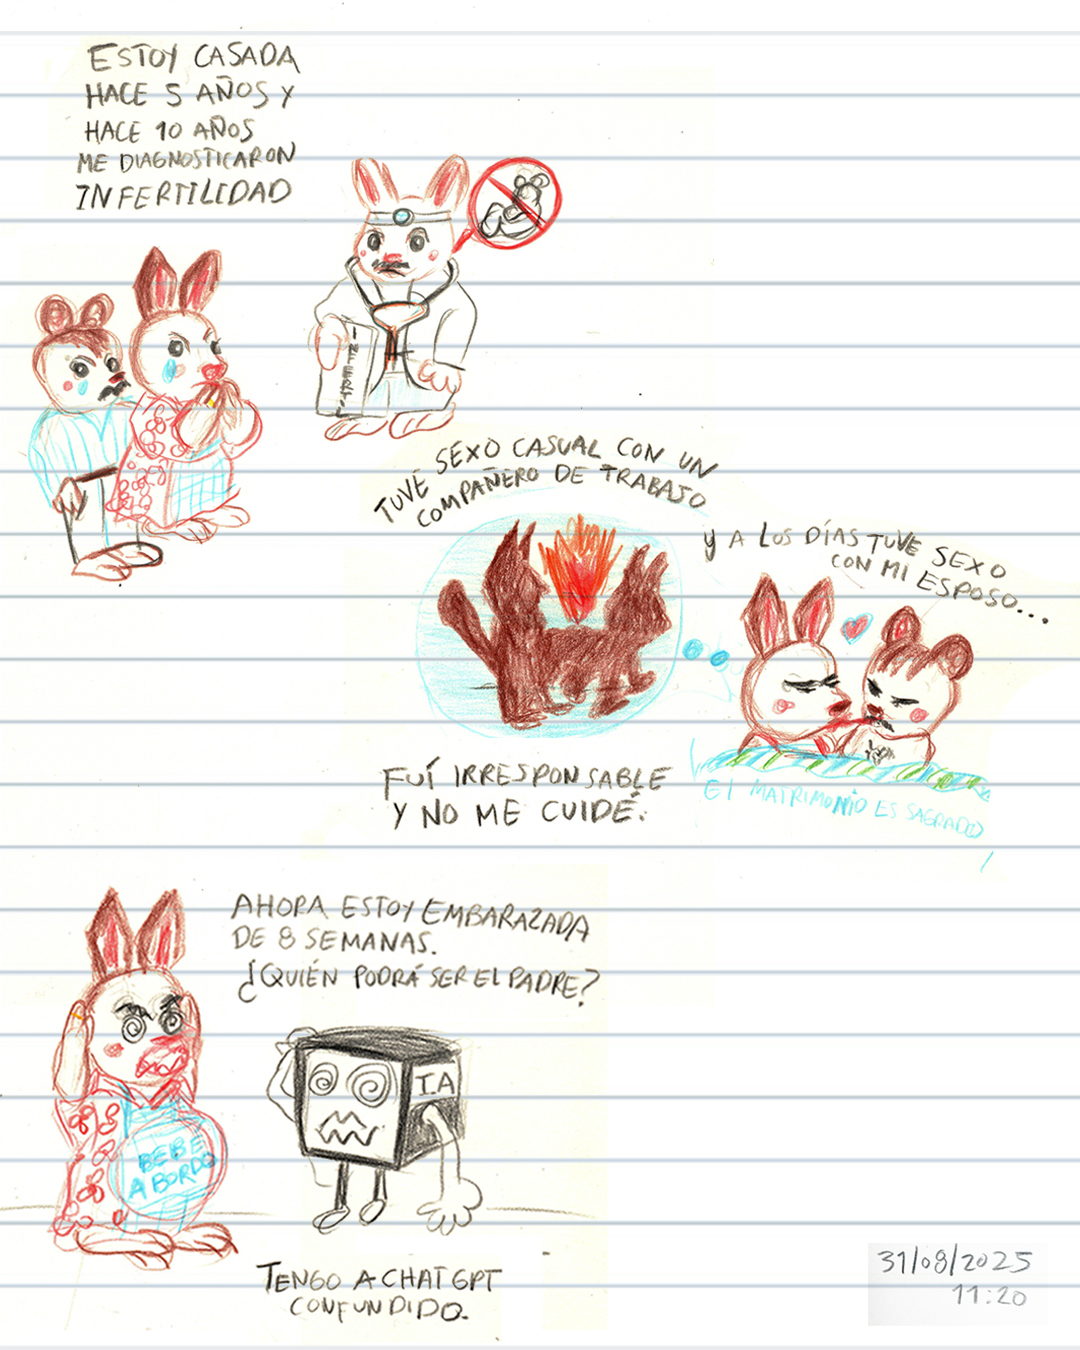 ESTOY CASADA
HACE 5 AÑOS Y
HACE 10 AÑOS
ME DIAGNOSTICARON
INFERTILIDAD
TUVE SEXO CASUAL CON UN
COMPAÑERO DE TRABAJO
Y A LOS DÍAS TUVE SEXO
CON MI ESPOSO...
FUÍ IRRESPONSABLE
Y NO ME CUIDÉ.
El MATRIMONIO ES SAGRADO
AHORA ESTOY EMBARAZADA
DE 8 SEMANAS.
¿QUIÉN PODRÁ SER EL PADRE?
I.A
BEBE
A BORDO
TENGO A CHAT GPT
CONFUNDIDO.
31/08/2025
11:20